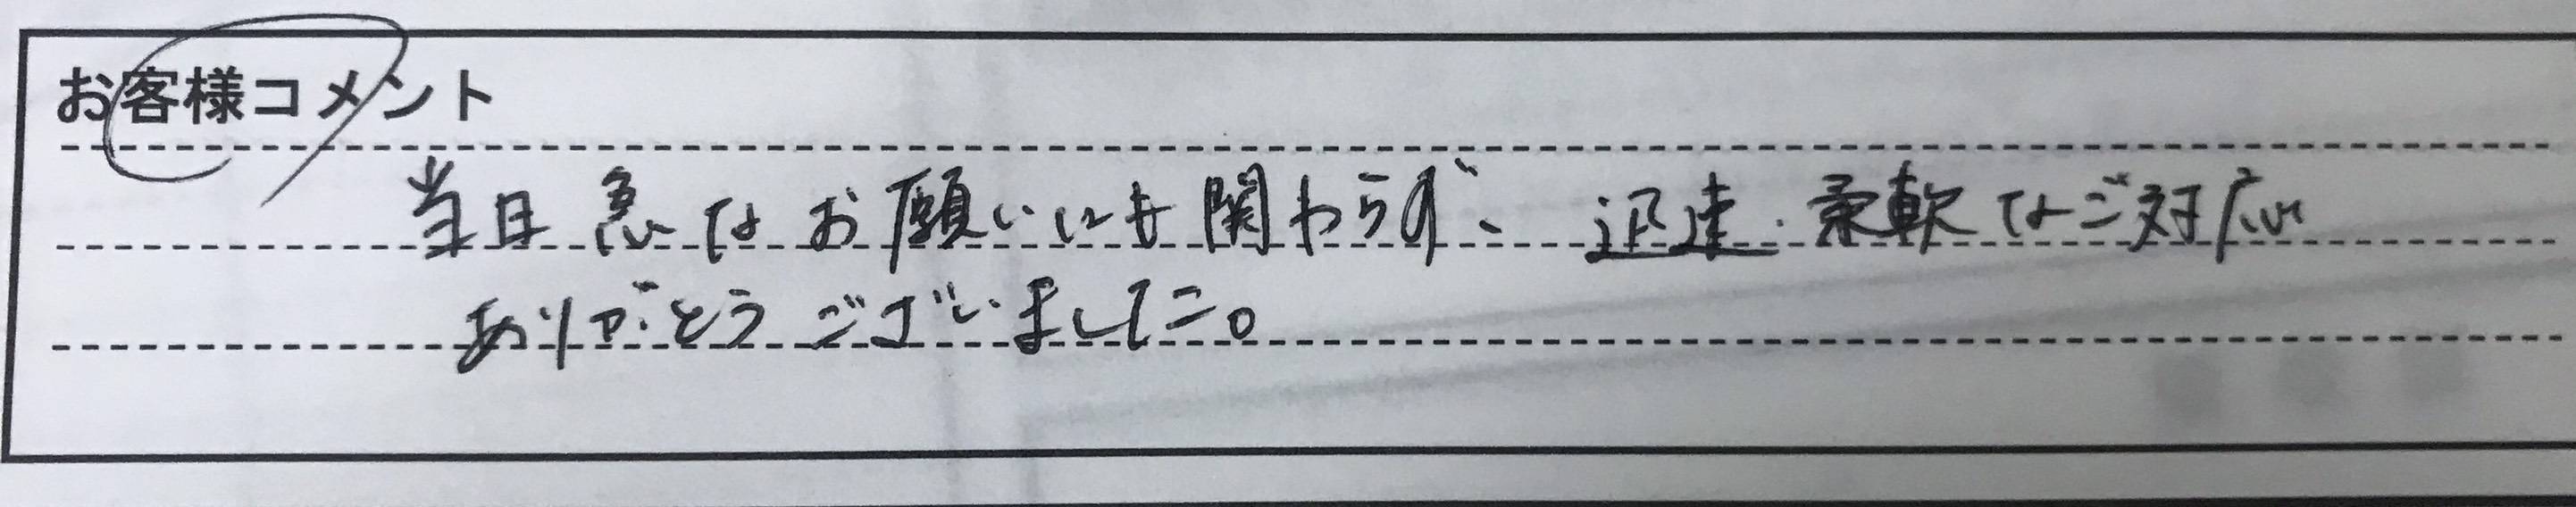 お客様コメント
当日急なお願いにも関わらず、迅速・柔軟なご対応
ありがとうございました。